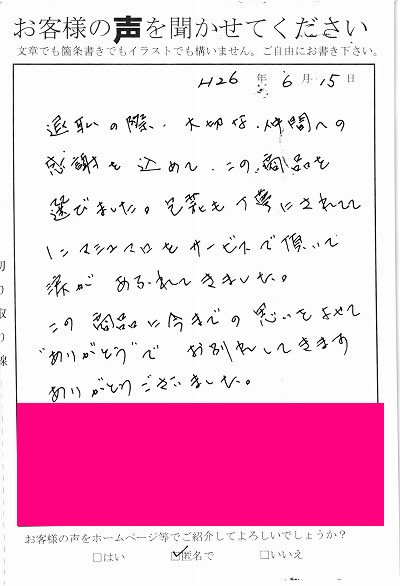 お客様の声を聞かせてください
文章でも箇条書きでもイラストでも構いません。ご自由にお書き下さい。
H26 年 6 月 15 日
退職の際、大切な、仲間への
感謝を込めて、この商品を
選びました。包装も丁寧にされてて
マシュマロをサービスで頂いて
涙があふれてきました。
この商品に今までの思いをよせて
"ありがとう"でお別れしてきます
ありがとうございました。
切り取り線
お客様の声をホームページ等でご紹介してよろしいでしょうか?
□はい ☑匿名で □いいえ